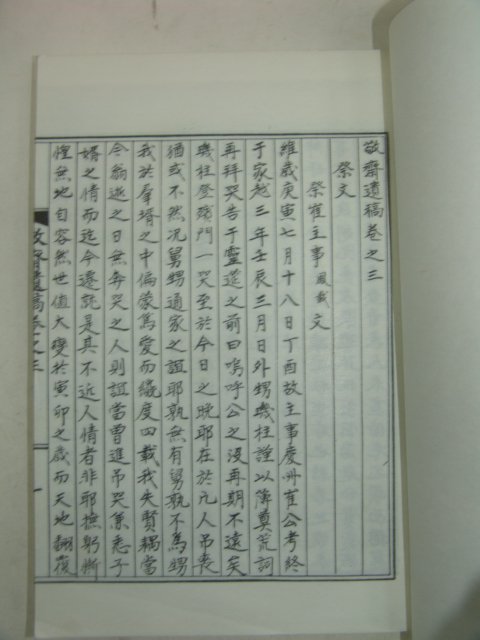 敬齋遺稿卷之三
祭文
祭崔主事鳳載文
維歲庚寅七月十八日丁酉故主事慶州崔公考終
于家越三年壬辰三月日外甥璣柱謹以薄奠荒詞
再拜哭告于靈筵之前曰嗚呼公之沒再期不遠矣
璣柱登殯門一哭至於今日之晚耶在於凡人吊喪
猶或不然况舅甥通家之誼耶孰無有舅孰不爲甥
我於羣壻之中偏蒙篤愛而纔度四載我失賢耦當
今翁逝之日無奔哭之人則誼當曾進吊哭兼悉子
婿之情而迄今遷就是其不近人情者非耶撫躬慚
惶無地自容然世値大變於寅卯之歲而天地翻覆
敬齋遺稿卷之三
一